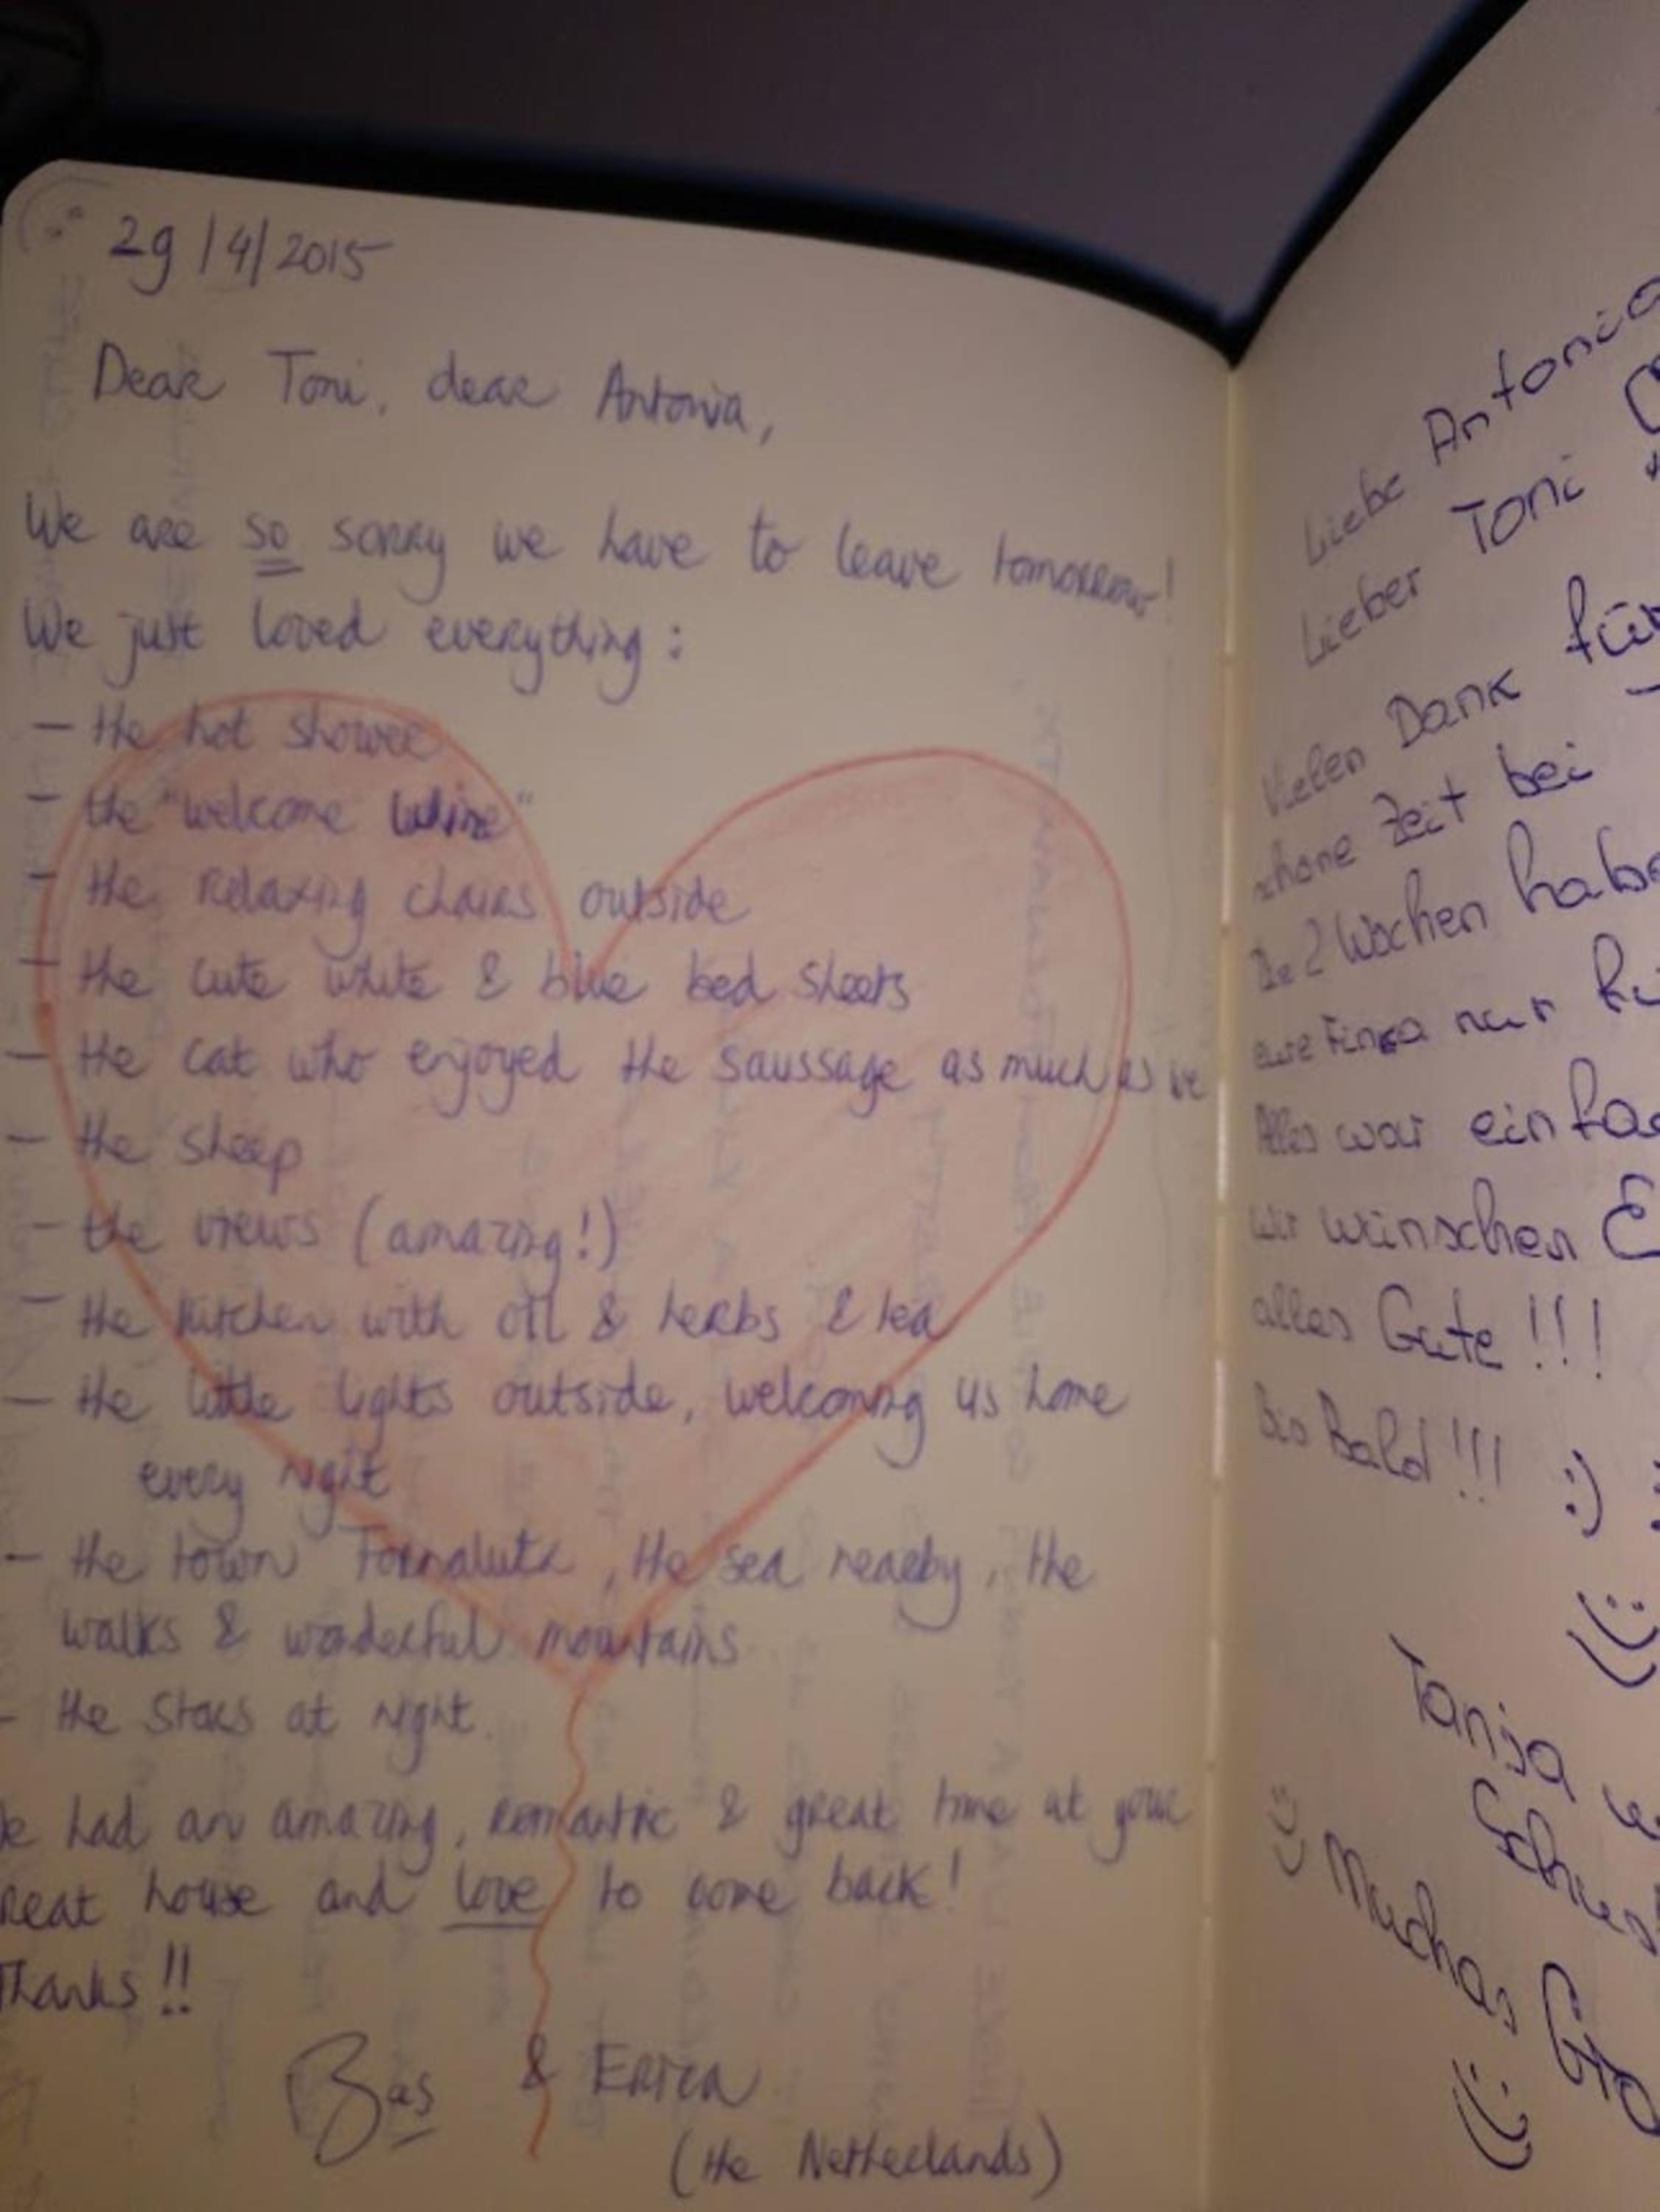 29/4/2015
Dear Toni, dear Antonia,
We are so sorry we have to leave tomorrow!
We just loved everything:
- the hot shower
- the "welcome wine"
- the relaxing chairs outside
- the cute white & blue bed sheets
- the cat who enjoyed the saussage as much as we
- the sheep
- the views (amazing!)
- the kitchen with oil & herbs & tea
- the little lights outside, welcoming us home
every night
- the town Fornalutx, the sea nearby, the
walks & wonderful mountains
- the stars at night.
e had an amazing, romantic & great time at your
reat house and love to come back!
Thanks!!
Bas & Erica
(the Netherlands)
Liebe Antonia
Lieber Toni
Vielen Dank für
schöne Zeit bei
Die 2 Wochen habe
eure Finca nur
Alles war einfa
Wir wünschen E
alles Gute!!!
Bis Bald!!! :)
Tanja
Muchas Gra